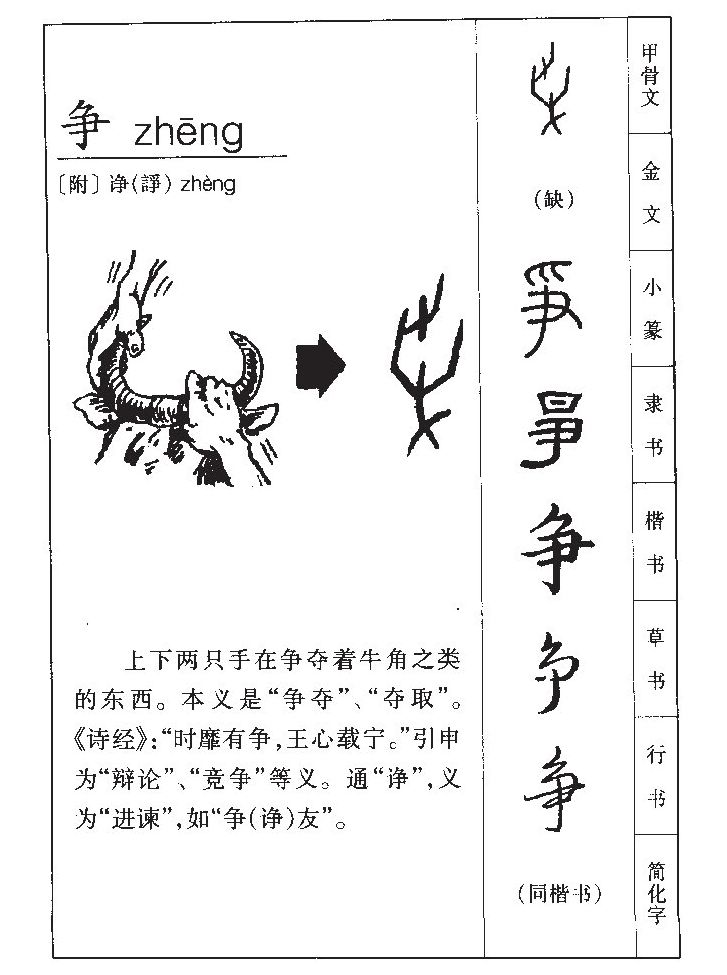 争 zhēng
〔附〕诤(諍) zhèng
上下两只手在争夺着牛角之类
的东西。本义是“争夺”、“夺取”。
《诗经》:“时靡有争,王心载宁。”引申
为“辩论”、“竞争”等义。通“诤”,义
为“进谏”,如“争(诤)友”。
甲骨文
(缺)
金文
爭
小篆
爭
隶书
争
楷书
争
草书
争
行书
(同楷书)
简化字